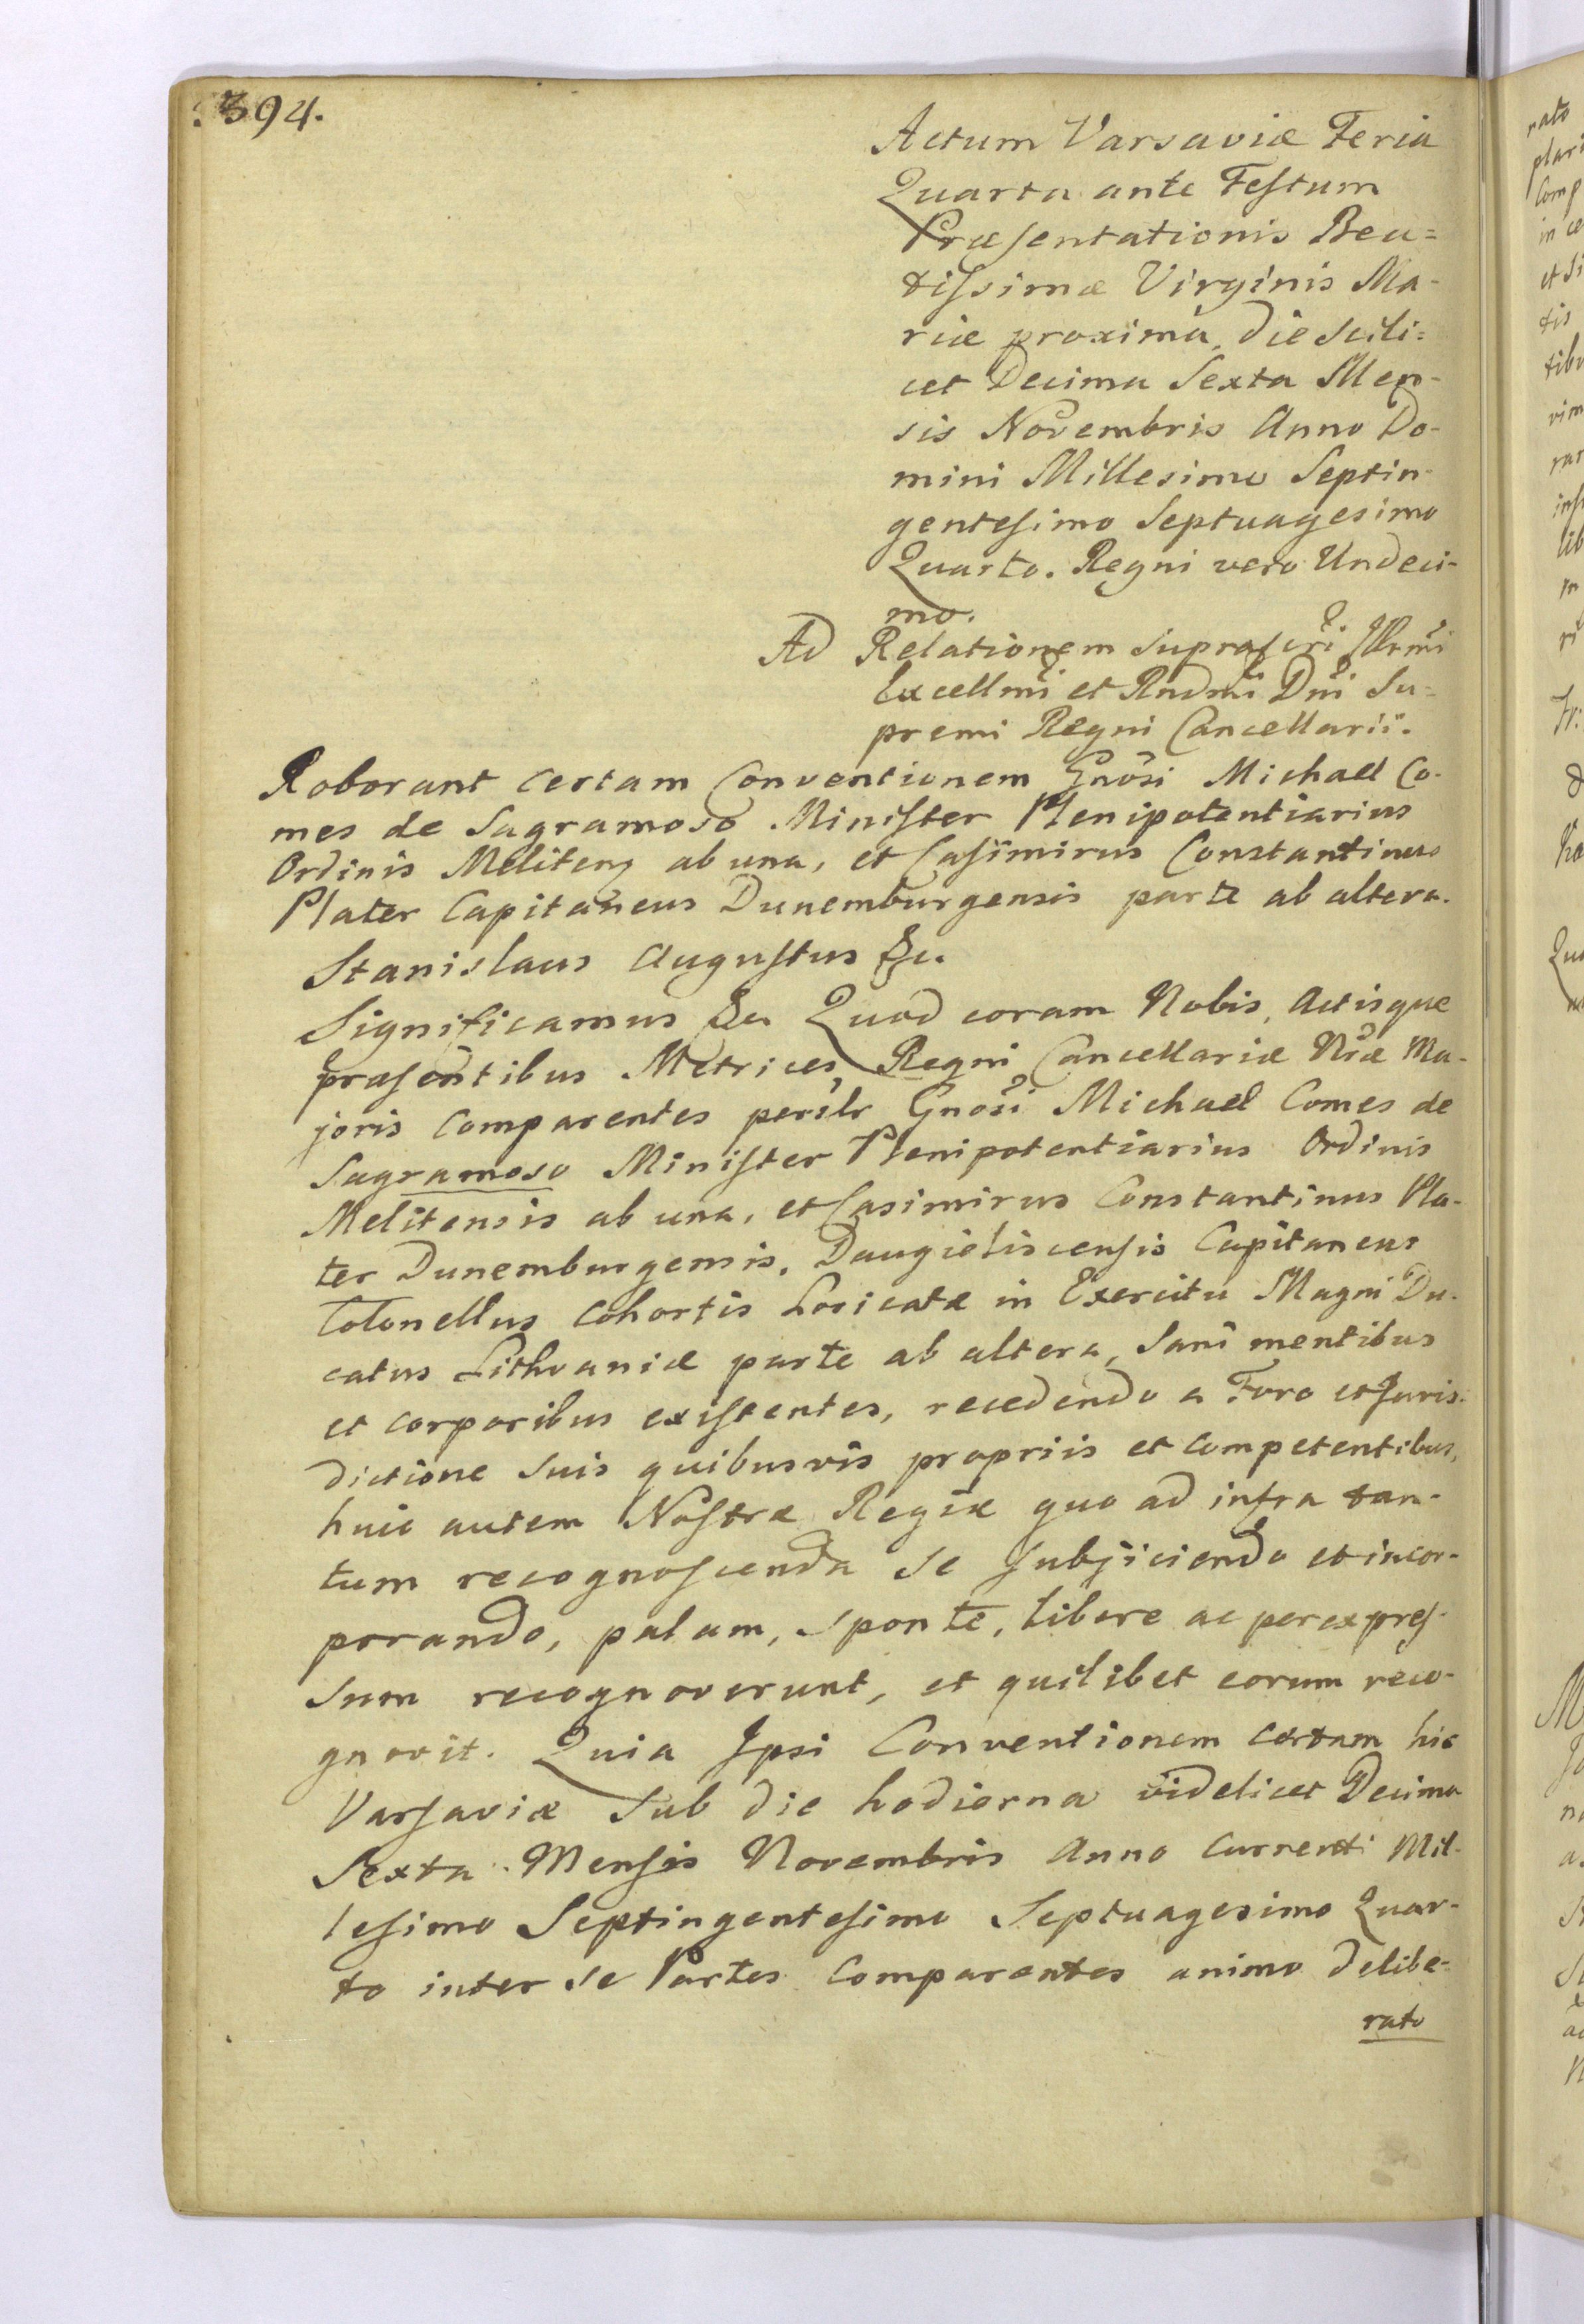 394.
Actum Varsaviæ Feria
Quarta ante Festum
Præsentationis Bea=
tissimæ Virginis Ma-
riæ proxima, die scili=
cet Decima Sexta Men-
sis Novembris Anno Do-
mini Millesimo Septin-
gentesimo Septuagesimo
Quarto. Regni vero Undeci-
mo.
Ad Relationem suprascri Illrmi
Excellmi et Rndmi Dni Su=
premi Regni Cancellarii.
Roborant certam Conventionem Gnosi Michael Co-
mes de Sagramoso Minister Plenipotentiarius
Ordinis Meliten ab una, et Casimirus Constantinus
Plater Capitaneus Dunemburgensis parte ab altera.
Stanislaus Augustus &c.
Significamus &c. Quod coram Nobis, Actisque
præsentibus Metrices, Regni Cancellariæ Nræ Ma-
joris Comparentes perilr Gnosi Michael Comes de
Sagramoso Minister Plenipotentiarius Ordinis
Melitensis ab una, et Casimirus Constantinus Pla-
ter Dunemburgensis, Daugieliscensis Capitaneus
Colonellus Cohortis Loricatæ in Exercitu Magni Du-
catus Lithvaniæ parte ab altera, Sani mentibus
et corporibus existentes, recedendo a Foro et Juris-
dictione suis quibusvis propriis et competentibus,
huic autem Nostræ Regiæ quo ad infra tan-
tum recognoscenda se subjiciendo et incor-
porando, palam, sponte, libere ac per expres-
sum recognoverunt, et quilibet eorum reco-
gnovit. Quia Ipsi Conventionem certam hic
Varsaviæ sub die hodierna videlicet Decima
Sexta Mensis Novembris Anno Currenti Mil-
lesimo Septingentesimo Septuagesimo Quar-
to inter se Partes Comparentes animo delibe-
rato
rato
in
et
tis
lib